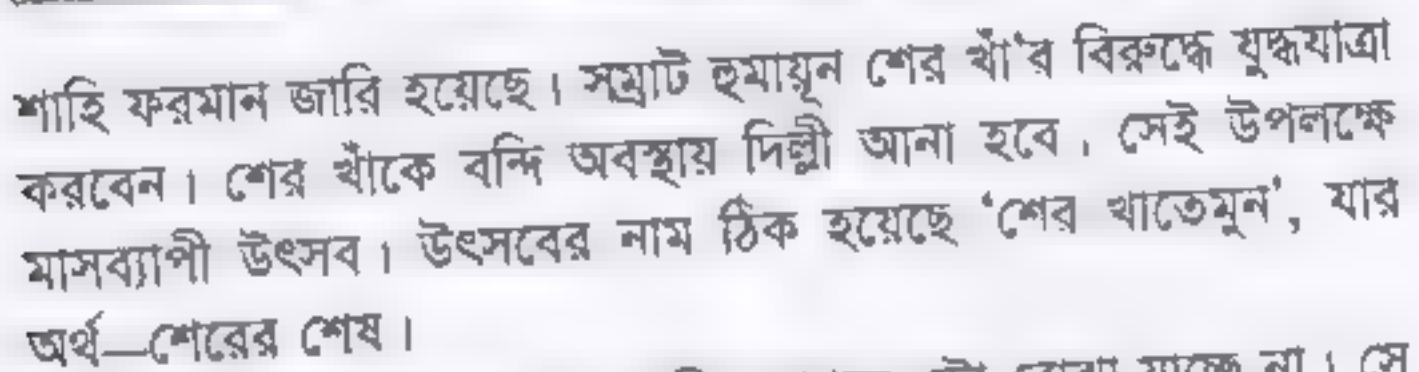 শাহি ফরমান জারি হয়েছে। সম্রাট হুমায়ূন শের খাঁ'র বিরুদ্ধে যুদ্ধযাত্রা
করবেন। শের খাঁকে বন্দি অবস্থায় দিল্লী আনা হবে। সেই উপলক্ষে
মাসব্যাপী উৎসব। উৎসবের নাম ঠিক হয়েছে ‘শের খাতেমুন’, যার
অর্থ—শেরের শেষ।
যাচ্ছে না। সে